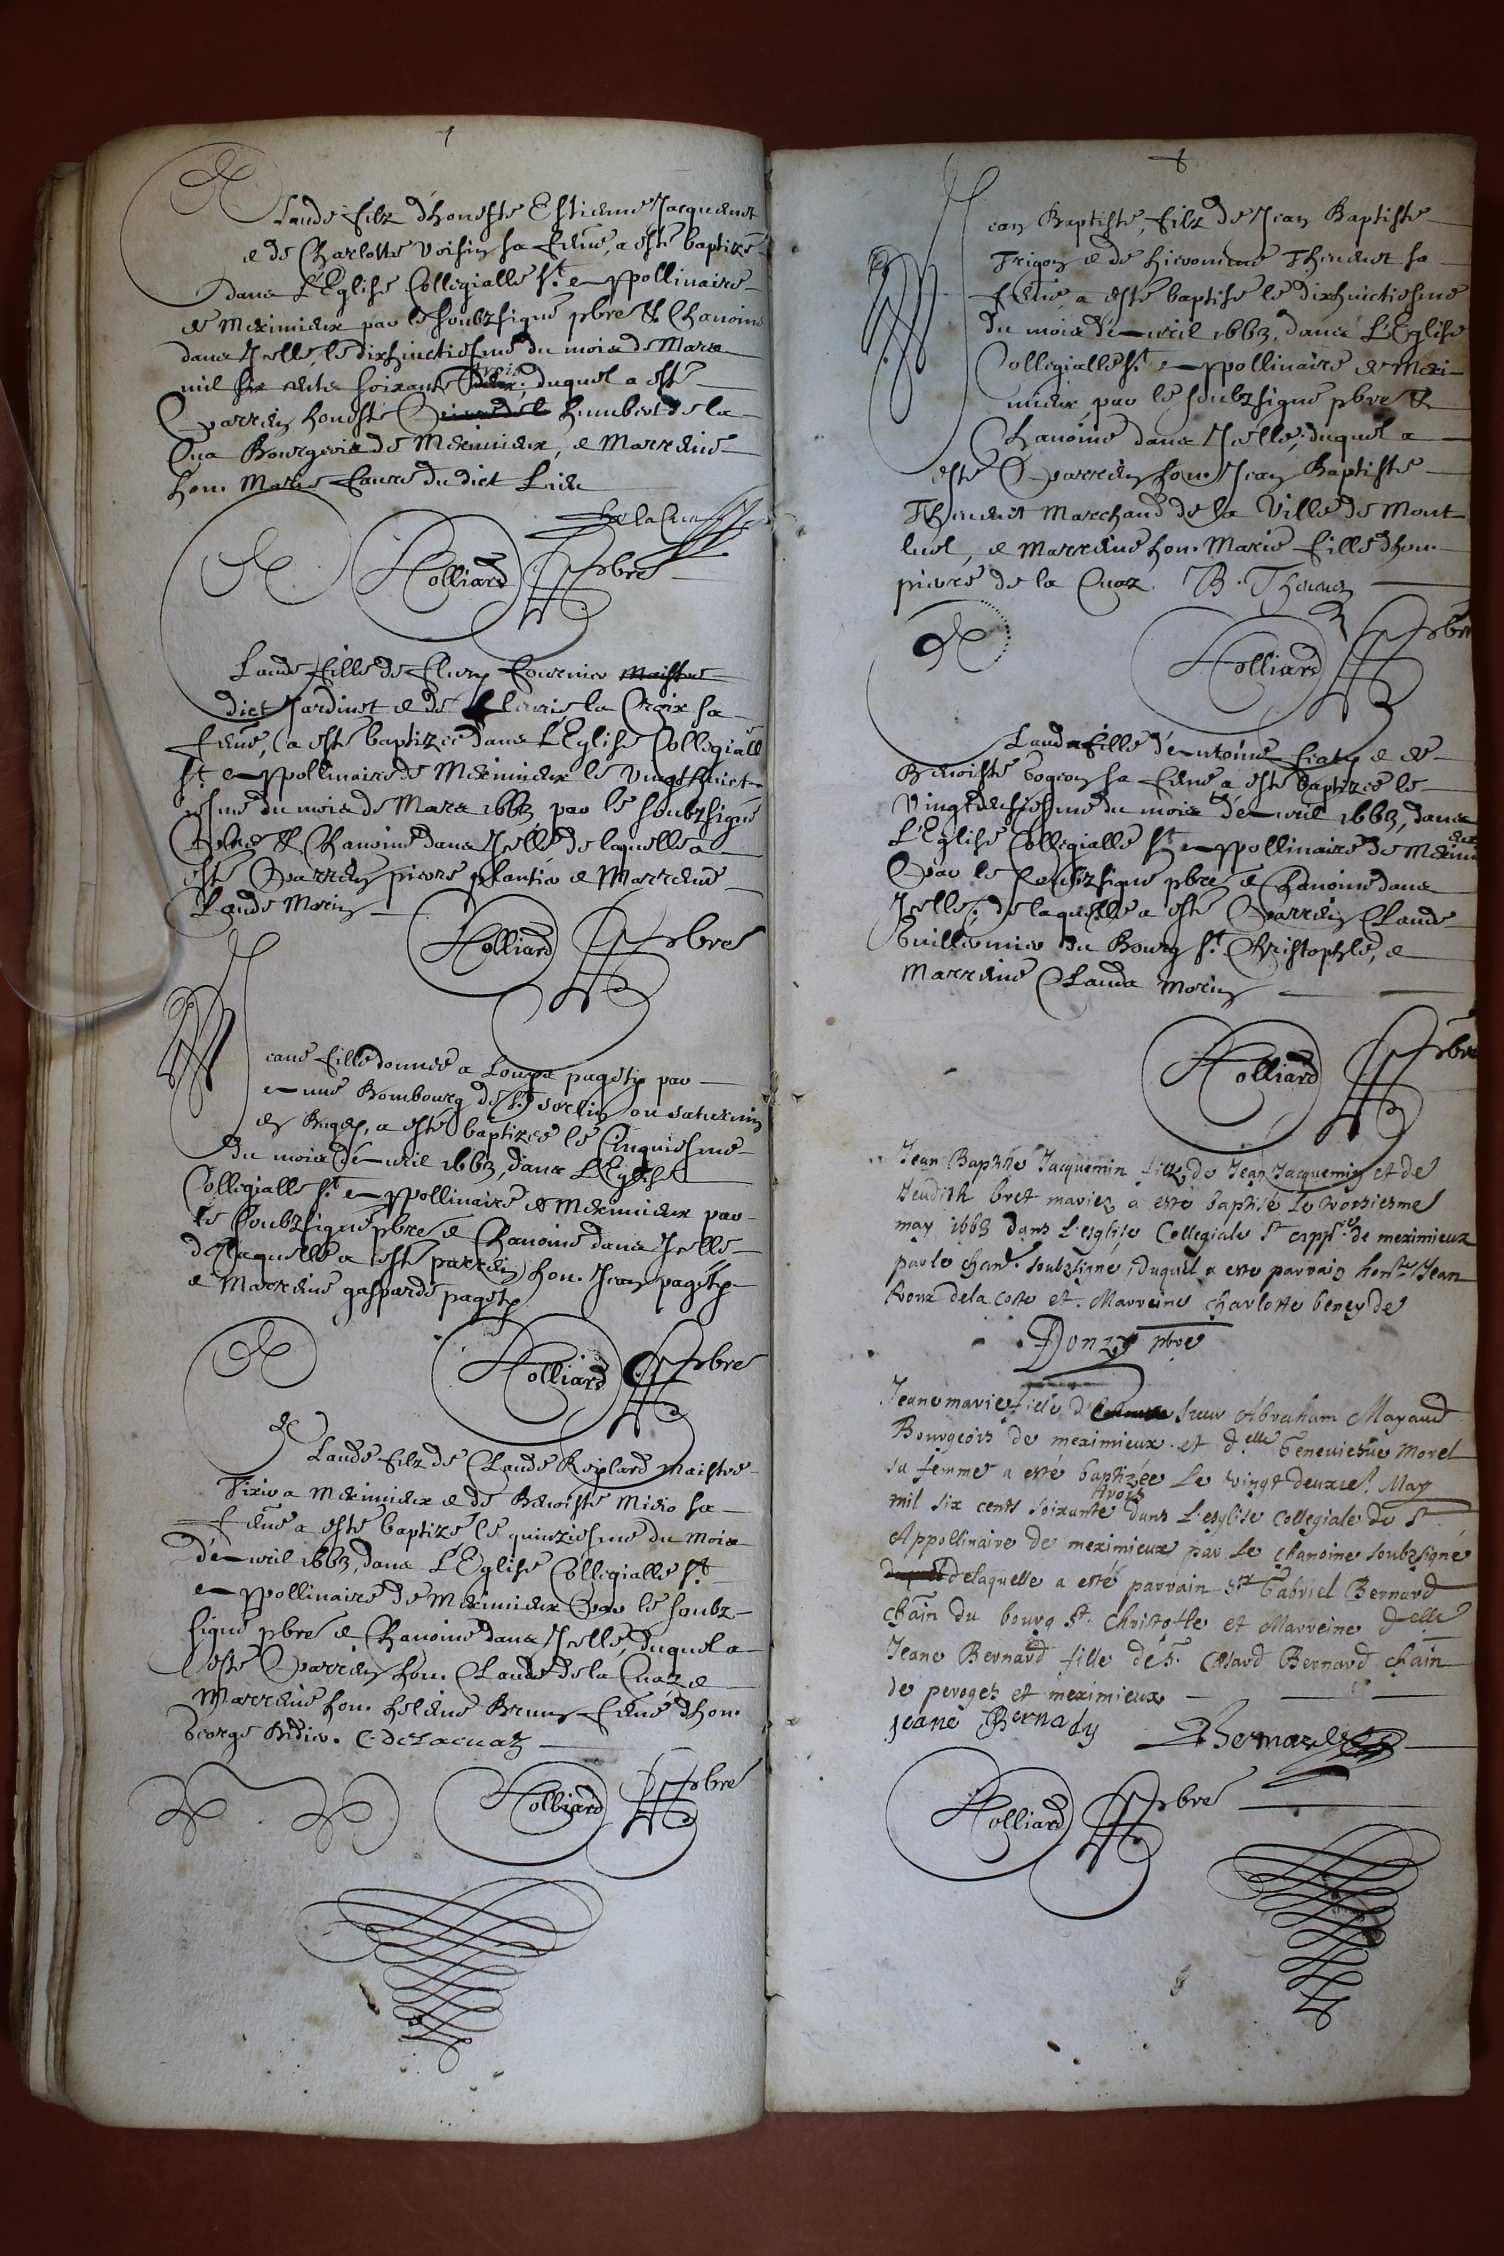 Claude filz d'honeste Estienne Jacquemet
& de Charlotte Voisin sa feme, a esté baptizé
dans L'Eglise Collegialle St. Appollinaire
de Meximieux par le soubzsigné pbre & Chanoine
dans Jcelle, le dixhuictiesme du mois de Mars
mil six cents soixante trois, duquel a esté
Parrein honeste Humbert de la
Cua Bourgeois de Meximieux, & Marreine
hon. Marie Faure du dict Lieu
De la Cua
Holliard pbre
Claude fille de Fleury Fournier
dict Jardinet & de Clauris la Croix sa
feme, a esté baptizée dans L'Eglise Collegialle
St. Appollinaire de Meximieux le Vingthuict-
iesme du mois de Mars 1663 par le soubzsigné
Pbre & Chanoine dans Jcelle de laquelle a
esté Parrein pierre plantier & Marreine
Claude Morin
Holliard pbre
Jeane fille donnée a Louys pagety par
Anne Bombourg de St. sorlin ou saturnin
en Bugey, a esté baptizée le Cinquiesme
du mois d'Avril 1663, dans L'Eglise
Collegialle St. Appollinaire de Meximieux par
le soubzsigné pbre & Chanoine dans Jcelle
de laquelle a esté parrein hon. Jean pagety
& Marreine gasparde pagety
Holliard pbre
Claude filz de Claude Replard maistre
Tixier a Meximieux & de Benoiste Midio sa
feme a esté baptizé le quinziesme du Mois
d'Avril 1663, dans L'Eglise Collegialle St.
Appollinaire de Meximieux Par le soubz-
signé pbre & Chanoine dans Jcelle, duquel a
esté Parrein hon. Claude de la Cuaz &
Marreine hon. helene Brun feme d'hon.
George Bidier. C. de Lacuaz
Holliard pbre
Jean Baptiste, filz de Jean Baptiste
Frigon & de hieronime Thevenet sa
feme a esté baptisé le dixhuictiesme
du mois d'Avril 1663, dans L'Eglise
Collegialle St. Appollinaire de Mexi-
mieux par le soubzsigné pbre &
Chanoine dans Jcelle, duquel a
esté Parrein hon. Jean Baptiste
Thevenet Marchand de la Ville de Mont-
luel, & Marreine hon. Marie fille d'hon.
pierre de la Cuaz. B. Thevenet
Holliard pbre
Clauda fille d'Antoine & de
Benoiste bogeon sa feme, a esté baptizée le
Vingtdeusiesme du mois d'Avril 1663, dans
L'Eglise Collegialle St. Appollinaire de Meximieux
Par le soubzsigné pbre & Chanoine dans
Jcelle; de laquelle a esté Parrein Claude
Guillermier du Bourg St. Christophle, &
Marreine Clauda Morin
Holliard pbre
Jean Baptiste Jacquemin filz de Jean Jacquemin et de
Jeudith bret mariez a esté baptisé le troisiesme
may 1663 dans L'esglise Collegiale St appre. de meximieux
par le chane. soubzsigné, duquel a esté parrain honte Jean
Roux dela coste et Marreine charlotte beneyde
Donzy pbre
Jeanemarie fille d' sieur Abraham Mayaud
Bourgeois de meximieux et delle Genevieve Morel
sa femme a esté baptizée Le vingt deuxie. May
mil six cents soixante trois dans L'esglise collegiale de St
Appollinaire de meximieux par Le chanoine soubzsigné
delaquelle a esté parrain sr Gabriel Bernard
chain du bourg St. Christofle et Marreine delle
Jeane Bernard fille de s. Cæsard Bernard chain
de peroges et meximieux
jeane Bernady Bernard
Holliard pbre